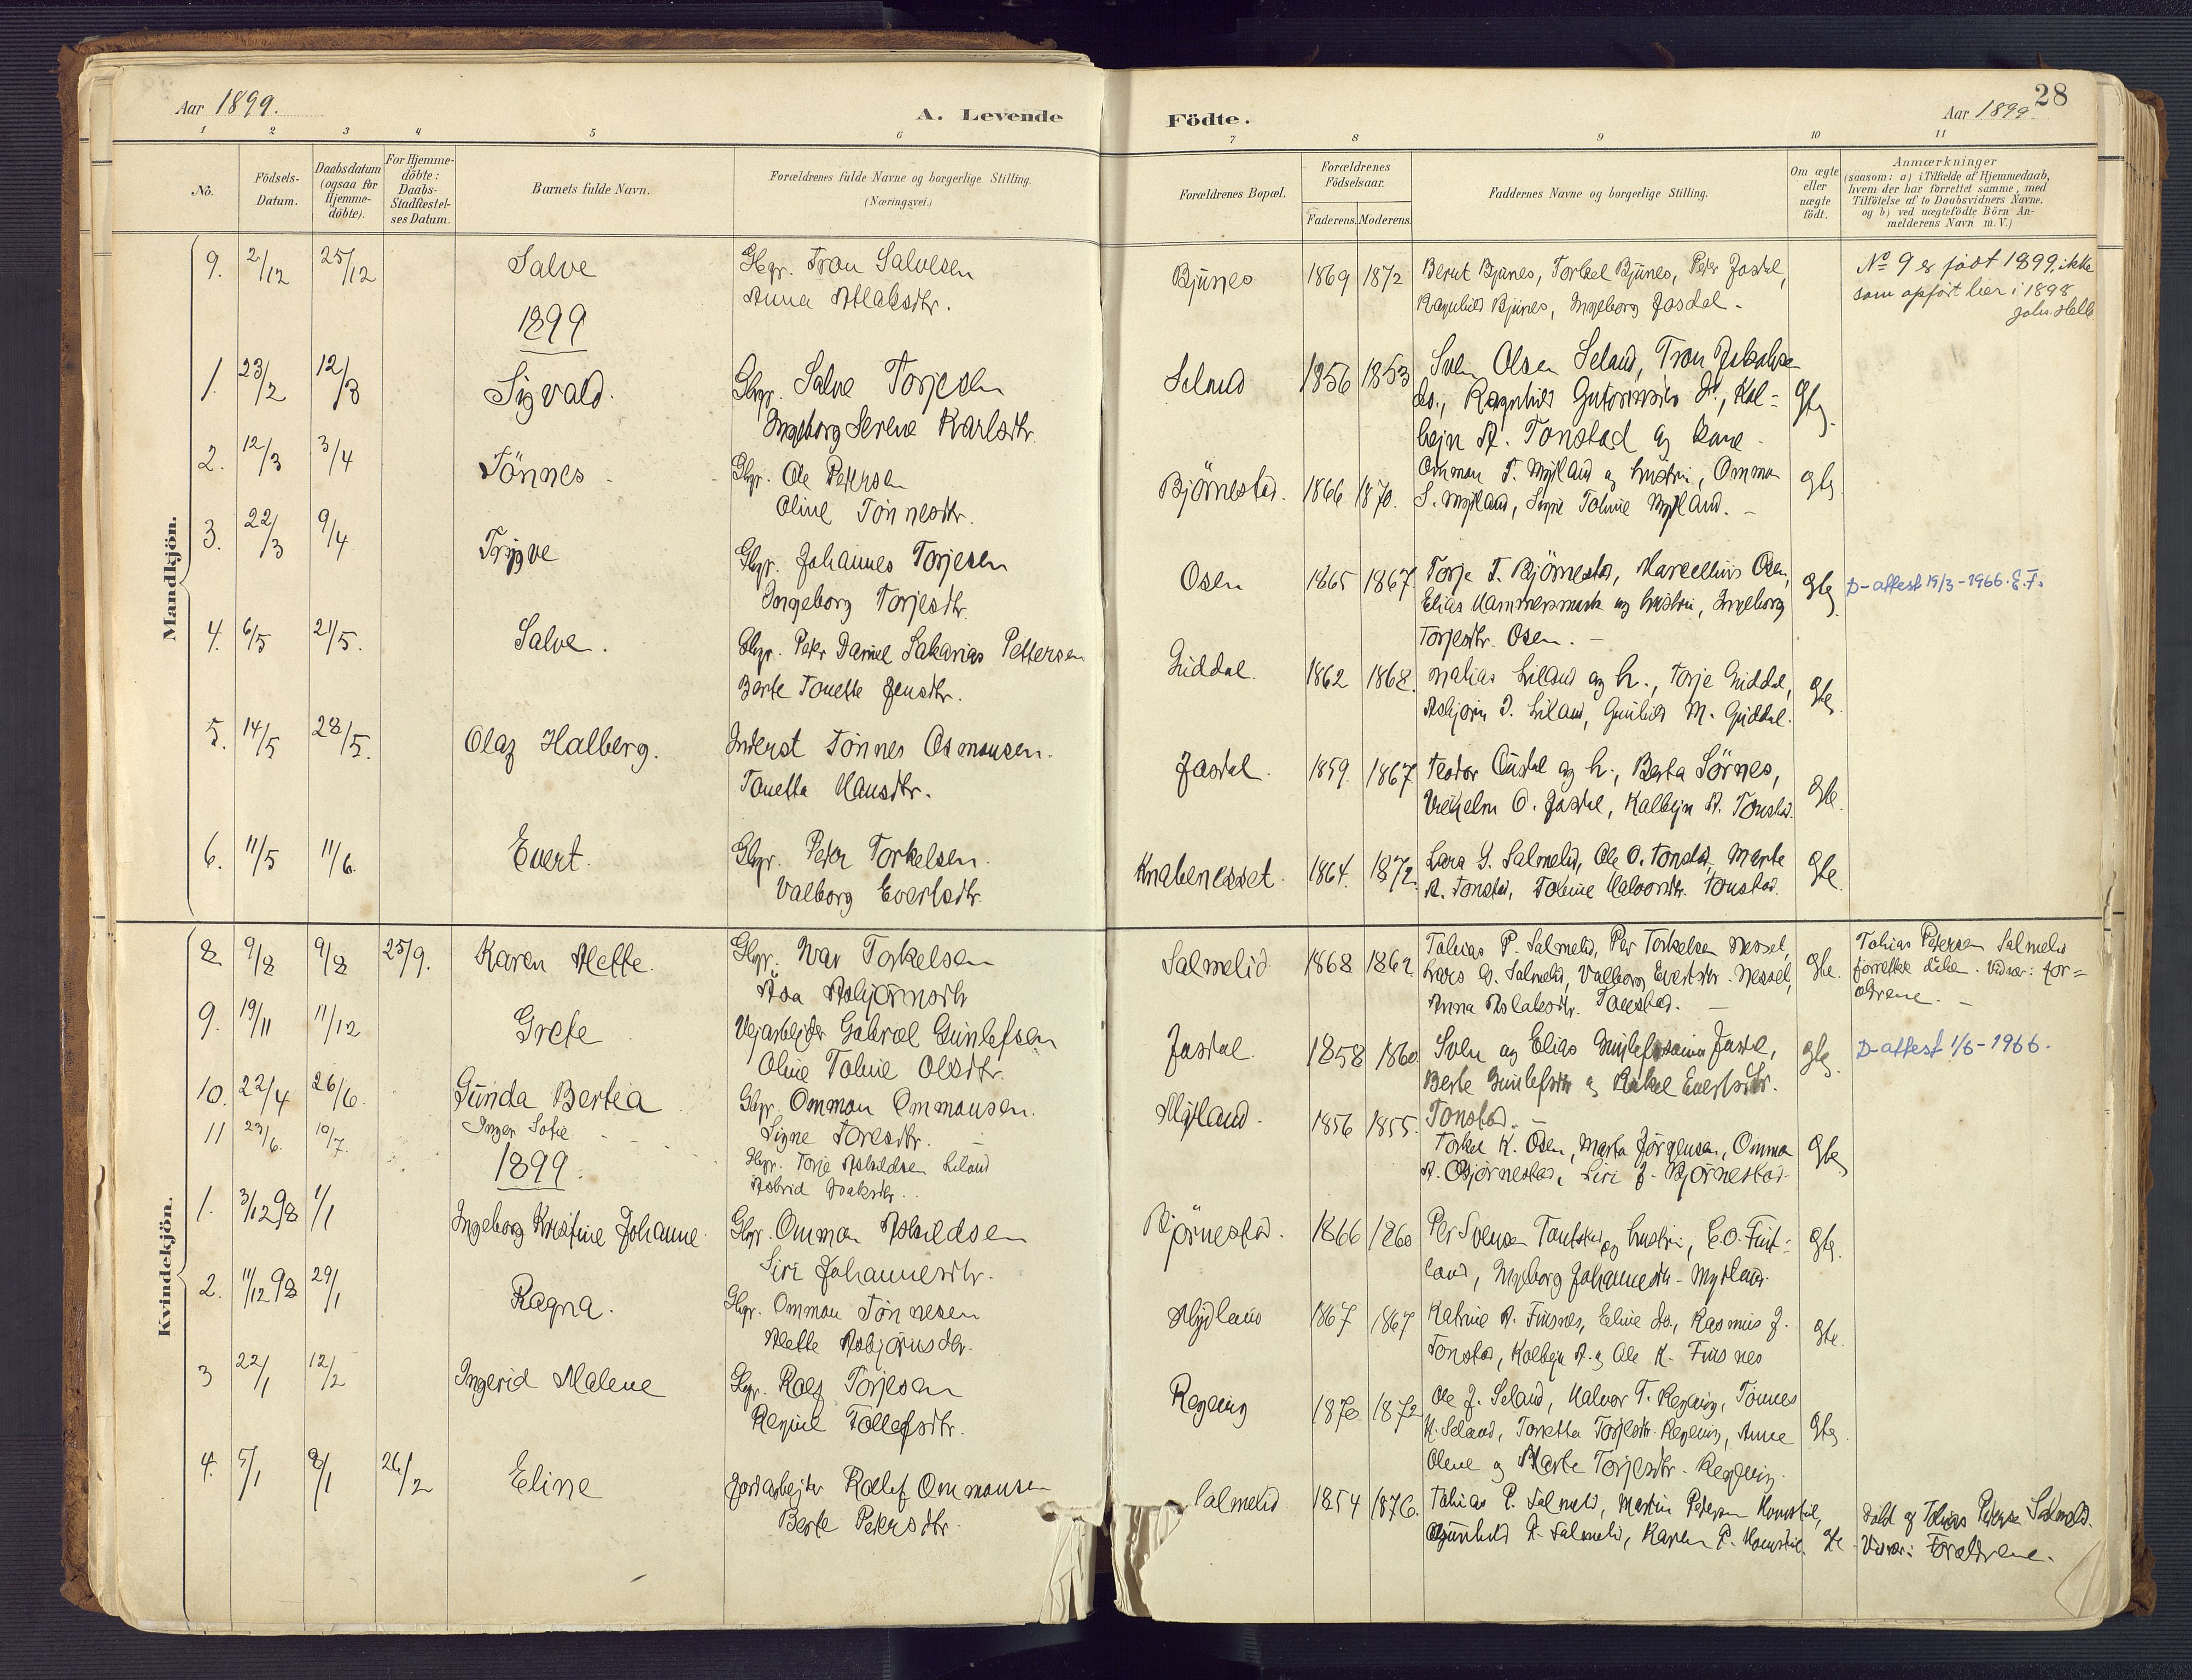 28
Aar 1899.
A. Levende
Födte.
Aar 1899
1 2 3 4 5 6 7 8 9 10 11
No.
Födsels-
Datum.
Daabsdatum
(ogsaa for
Hjemme-
döbte).
For Hjemme-
döbte:
Daabs-
Stadfæstel-
ses Datum.
Barnets fulde Navn.
Forældrenes fulde Navne og borgerlige Stilling.
(Næringsvei.)
Forældrenes Bopæl.
Forældrenes
Födselsaar.
Faderens. Moderens.
Faddernes Navne og borgerlige Stilling.
Om ægte
eller
uægte
født.
Anmærkninger
(saasom: a) i Tilfælde af Hjemmedaab,
hvem der har forrettet samme, med
Tilföielse af to Daabsvidners Navne,
og b) ved uægtefödte Börn An-
melderens Navn m. V.)
Mandkjön.
9. 2/12 25/12 Salve Gbgr. Tron Salvesen
Anna Aslaksdtr.
Bjunes 1869 1872 Berut Bjunes, Torkel Bjunes, Peter Josdal,
Ragnhild Bjunes, Ingeborg Josdal.
No 9 er født 1899, ikke
som opført her i 1898
1899
1. 23/2 12/3 Sigvald. Gbgr. Salve Torjesen
Ingeborg Serene Karlsdtr.
Seland 1856 1853 Sven Olsen Seland, Tron Jakobsen
do., Ragnhild
A. Tonstad og Kone
2. 12/3 3/4 Tönnes Gbgr. Ole Petersen
Oline Tönnesdtr.
Bjørnestad. 1866 1870. Omman T. Mydland og hustru, Omman
S. Mydland, Signe Toline Mydland.
3. 22/3 9/4 Trygve Gbgr. Johannes Torjesen
Ingeborg Torjesdtr.
Osen 1865 1867 Torje T. Bjørnestad, Marcellius Osen,
Elias Hammersmark og hustru, Ingeborg
Torjesdtr. Osen.
gte D-attest 19/3-1966. E.F.
4. 6/5 21/5. Salve. Gbgr. Peter Daniel Sakarias Pettersen
Berte Tonette Jensdtr.
Guddal. 1862 1868. Malias Liland og h., Torje Guddal,
Asbjørn J. Liland, Gunhild M. Guddal.
gte
5. 14/5 28/5. Olaf Halberg. Inderst Tønnes Osmonsen.
Tonetta Hansdtr.
Josdal. 1859. 1867 Teodor Ousdal og h., Berta Sørnes,
Vilhelm O. Josdal, Kolbejn A. Tonstad.
gte.
6. 11/5 11/6. Evert. Gbgr. Peter Torkelsen.
Valborg Evertsdtr.
Knabenesset. 1864. 1872. Lars G. Salmelid, Ole O. Tonstad, Marte
A. Tonstad, Toline Halvorsdtr. Tonstad.
gte.
Kvindekjön.
8 9/8 9/8 25/9. Karen Mette. Gbgr. Ivar Torkelsen
Åsa Asbjørnsdtr
Salmelid 1868 1862 Tobias P. Salmelid, Per Torkelsen Nesset,
Lars G. Salmelid, Valborg Evertsdtr. Nesset,
Anna Aslaksdtr. Tonstad.
gte. Tobias Petersen Salmelid
forrettet dåben. Vidner: for=
ældrene.
9. 19/11 11/12 Grete Vejarbejder Gabriel Gunlefsen
Oline Toline Olsdtr.
Josdal 1858 1860 Sven og Elias Gunlefssønner Josdal,
Berte Gunlefsdtr og Rakel Evertsdtr.
Tonstad.
gte D-attest 1/6-1966.
10. 22/4 26/6. Gunda Bertea Gbgr. Omman Ommansen.
Signe Toresdtr.
Mydland. 1856 1855. Torkel K. Osen, Marta Jörgensen, Omman
A. Bjørnestad, Siri J. Bjørnestad.
gte
11 23/6. 10/7. Inger Sofie Gbgr. Torje Askildsen Liland
Astrid Isaksdtr.
1899.
1. 3/12 98 1/1 Ingeborg Kristine Johanne Gbgr. Omman Askildsen
Siri Johannesdtr.
Bjørnestad. 1866 1860 Per Svensen Tonstad og hustru, E.O. Fint=
land, Ingeborg Johannesdtr. Mydland.
gte.
2. 11/12 98 29/1 Ragna. Gbgr. Omman Tönnesen
Mette Asbjørnsdtr.
Mydland 1867 1867 Katrine A. Finsnes, Eline do., Rasmus J.
Tonstad, Kolbejn A. og Ole K. Finsnes
gte.
3 22/1 12/2 Ingerid Malene Gbgr. Rolf Torjesen
Regine Tollefsdtr.
Regeing 1870 1872 Ole J. Seland, Halvor T. Regeing, Tönnes
H. Seland, Tonetta Torjesdtr. Regeing, Anne
Olene og Marte Torjesdtr. Regeing.
gte.
4. 5/1 8/1 26/2 Eline Jordarbejder Rollef Ommansen
Berte Petersdtr.
Salmelid 1854 1876. Tobias P. Salmelid, Martin Petersen Homstøl,
Gunhild P. Salmelid, Karen P. Homstøl.
gte Døbt af Tobias Peters. Salmelid.
Vidner: Forældrene.